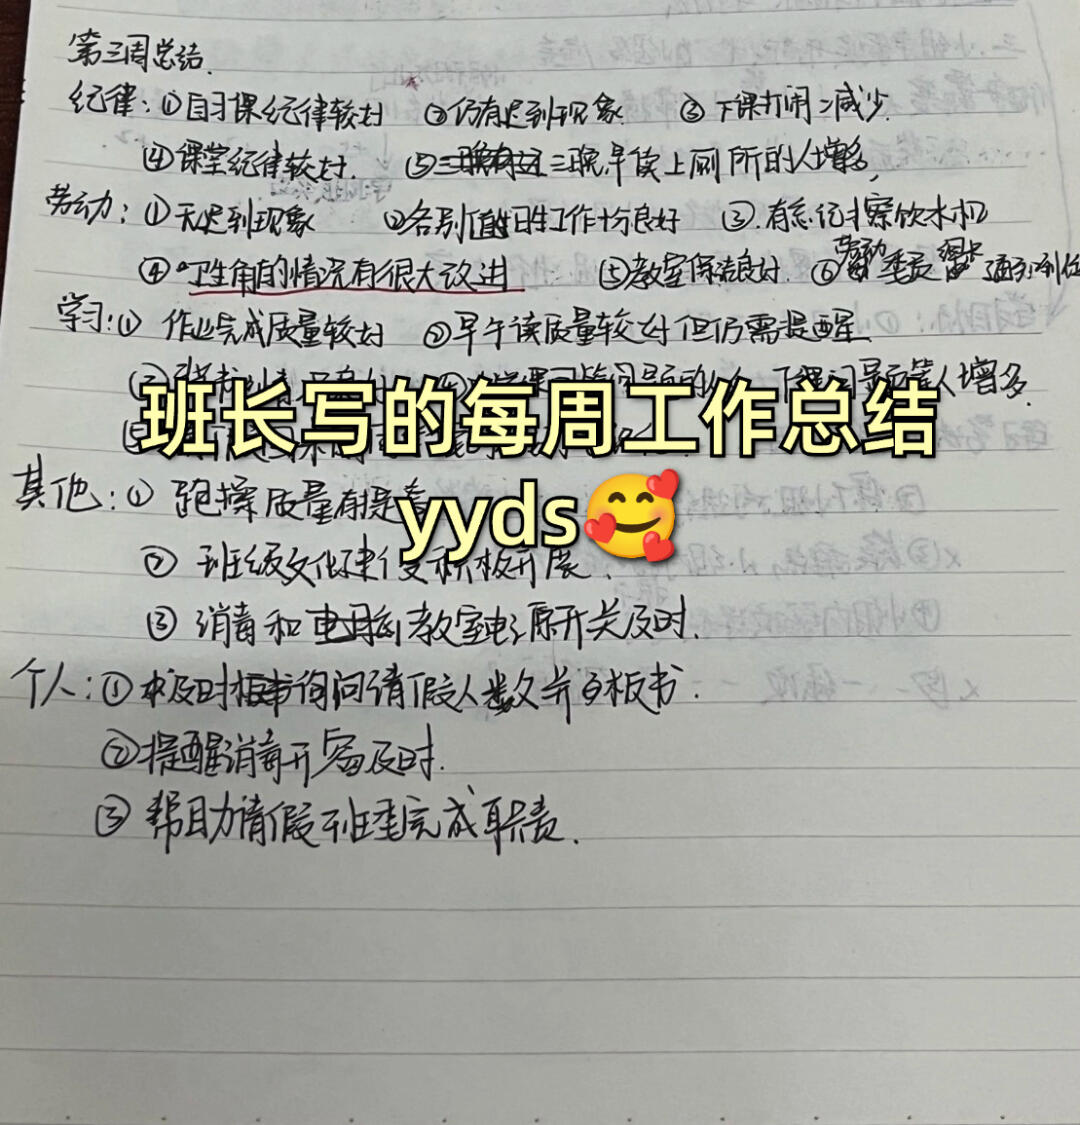 第三周总结.
纪律：①自习课纪律较好 ②仍有迟到现象 ③下课打闹减少.
④课堂纪律较好. ⑤三晚早读上厕所的人增多,
劳动：①无迟到现象 ②各别值日生工作十分良好 ③.有忘记擦饮水机
④卫生角的情况有很大改进 ⑤教室保洁良好 ⑥劳动委员
学习：① 作业完成质量较好 ②早午读质量较好但仍需提醒
人增多.
班长写的每周工作总结
yyds🥰
其他：① 跑操质量有提高
② 班级文化建设积极开展.
③ 消毒和教室电源开关及时.
个人：①未及时询问请假人数并板书.
②提醒消毒开窗及时.
③ 帮助请假班委完成职责.